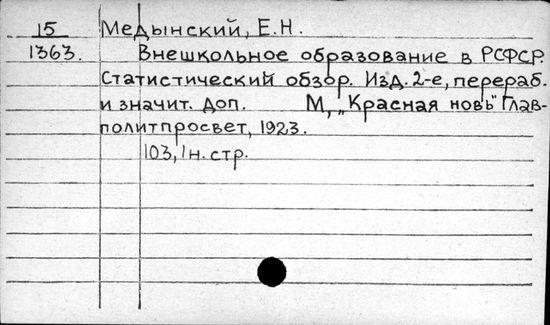 15 Медынский, Е.Н.
1363. Внешкольное образование в РСФСР.
Статистический обзор. Изд. 2-е, перераб.
и значит. доп. М, „Красная новь" Глав-
политпросвет, 1923.
103, 1 н. стр.